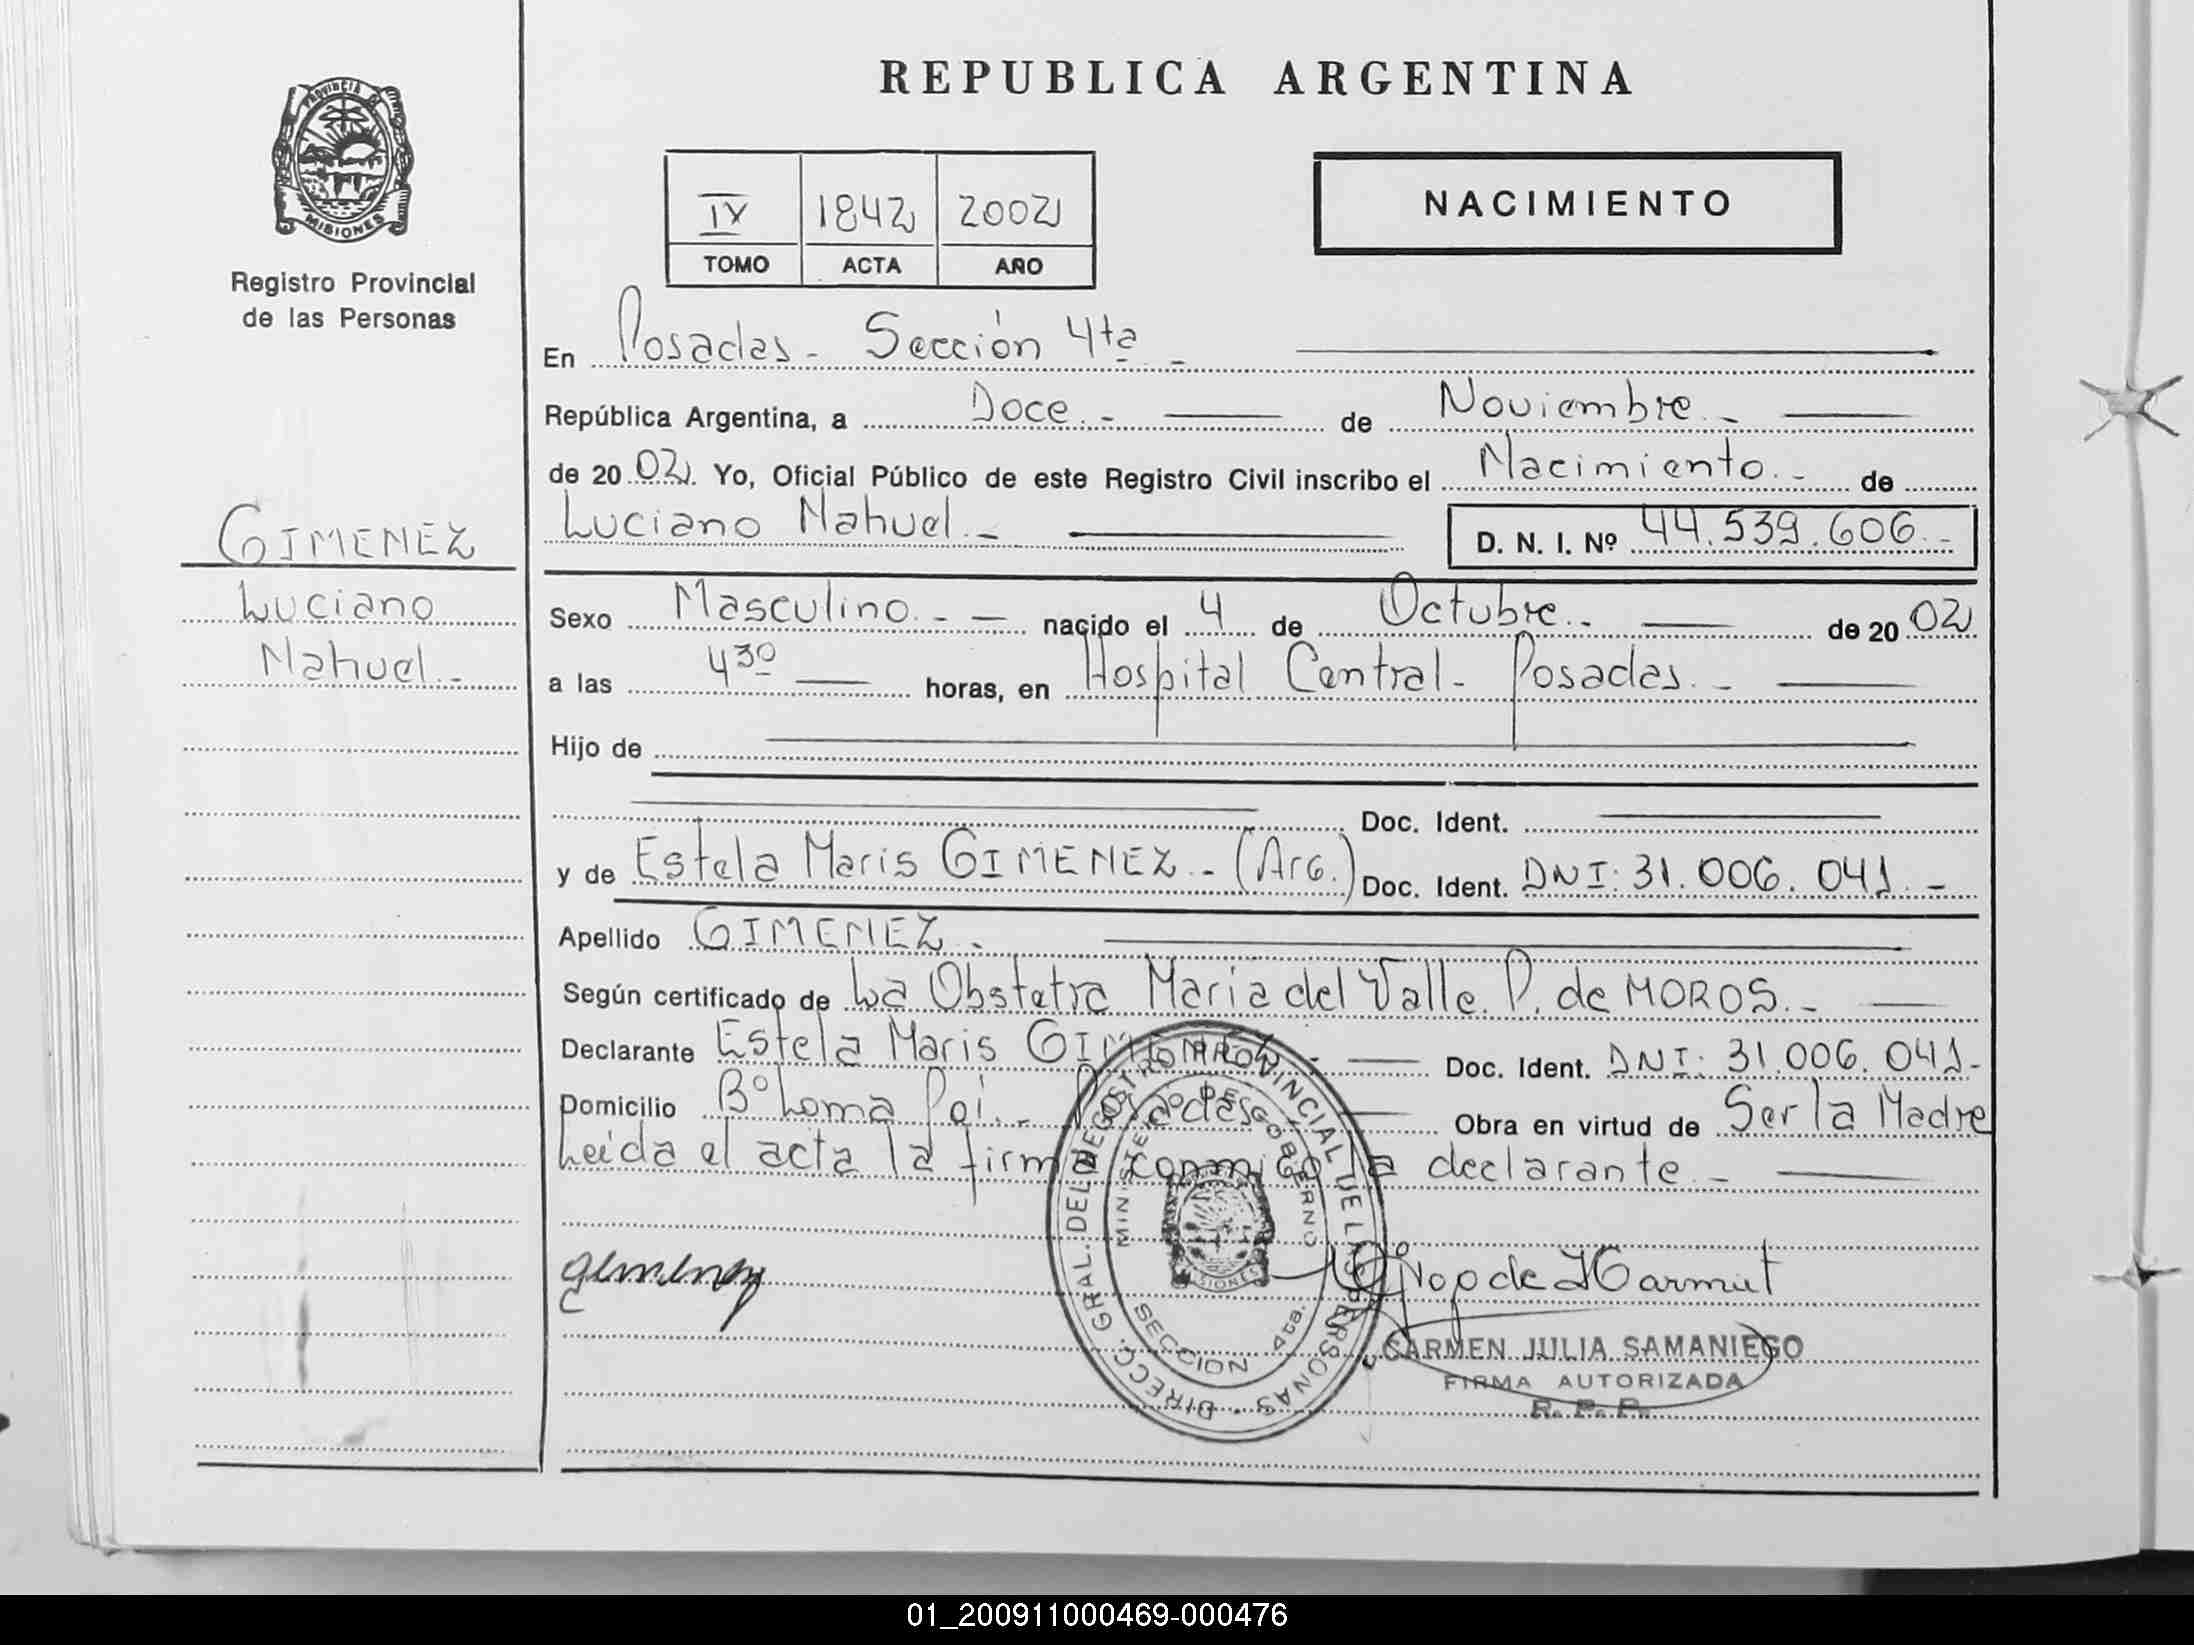 REPUBLICA ARGENTINA
PROVINCIA DE
MISIONES
Registro Provincial
de las Personas
IV 1842 2002
TOMO ACTA AÑO
NACIMIENTO
En Posadas - Sección 4ta -
República Argentina, a Doce.- de Noviembre.-
de 20 02. Yo, Oficial Público de este Registro Civil inscribo el Nacimiento.- de
GIMENEZ
Luciano
Nahuel.-
Luciano Nahuel.- D. N. I. Nº 44.539.606.-
Sexo Masculino.- nacido el 4 de Octubre.- de 20 02
a las 4 30 horas, en Hospital Central - Posadas.-
Hijo de
Doc. Ident.
y de Estela Maris GIMENEZ.- (Arg.) Doc. Ident. DNI: 31.006.041.-
Apellido GIMENEZ.
Según certificado de La Obstetra Maria del Valle P. de MOROS.-
Declarante Estela Maris GIMENEZ.- Doc. Ident. DNI: 31.006.041-
Domicilio Bº Loma Poi.- Posadas Obra en virtud de Ser la Madre
Leida el acta la firma conmigo la declarante.-
DIRECC. GRAL. DEL REGISTRO PROVINCIAL DE LAS PERSONAS
MINISTERIO DE GOBERNO
MISIONES
SECCION 4ta.
Gimenez
CARMEN JULIA SAMANIEGO
FIRMA AUTORIZADA
R. P. P.
01_200911000469-000476